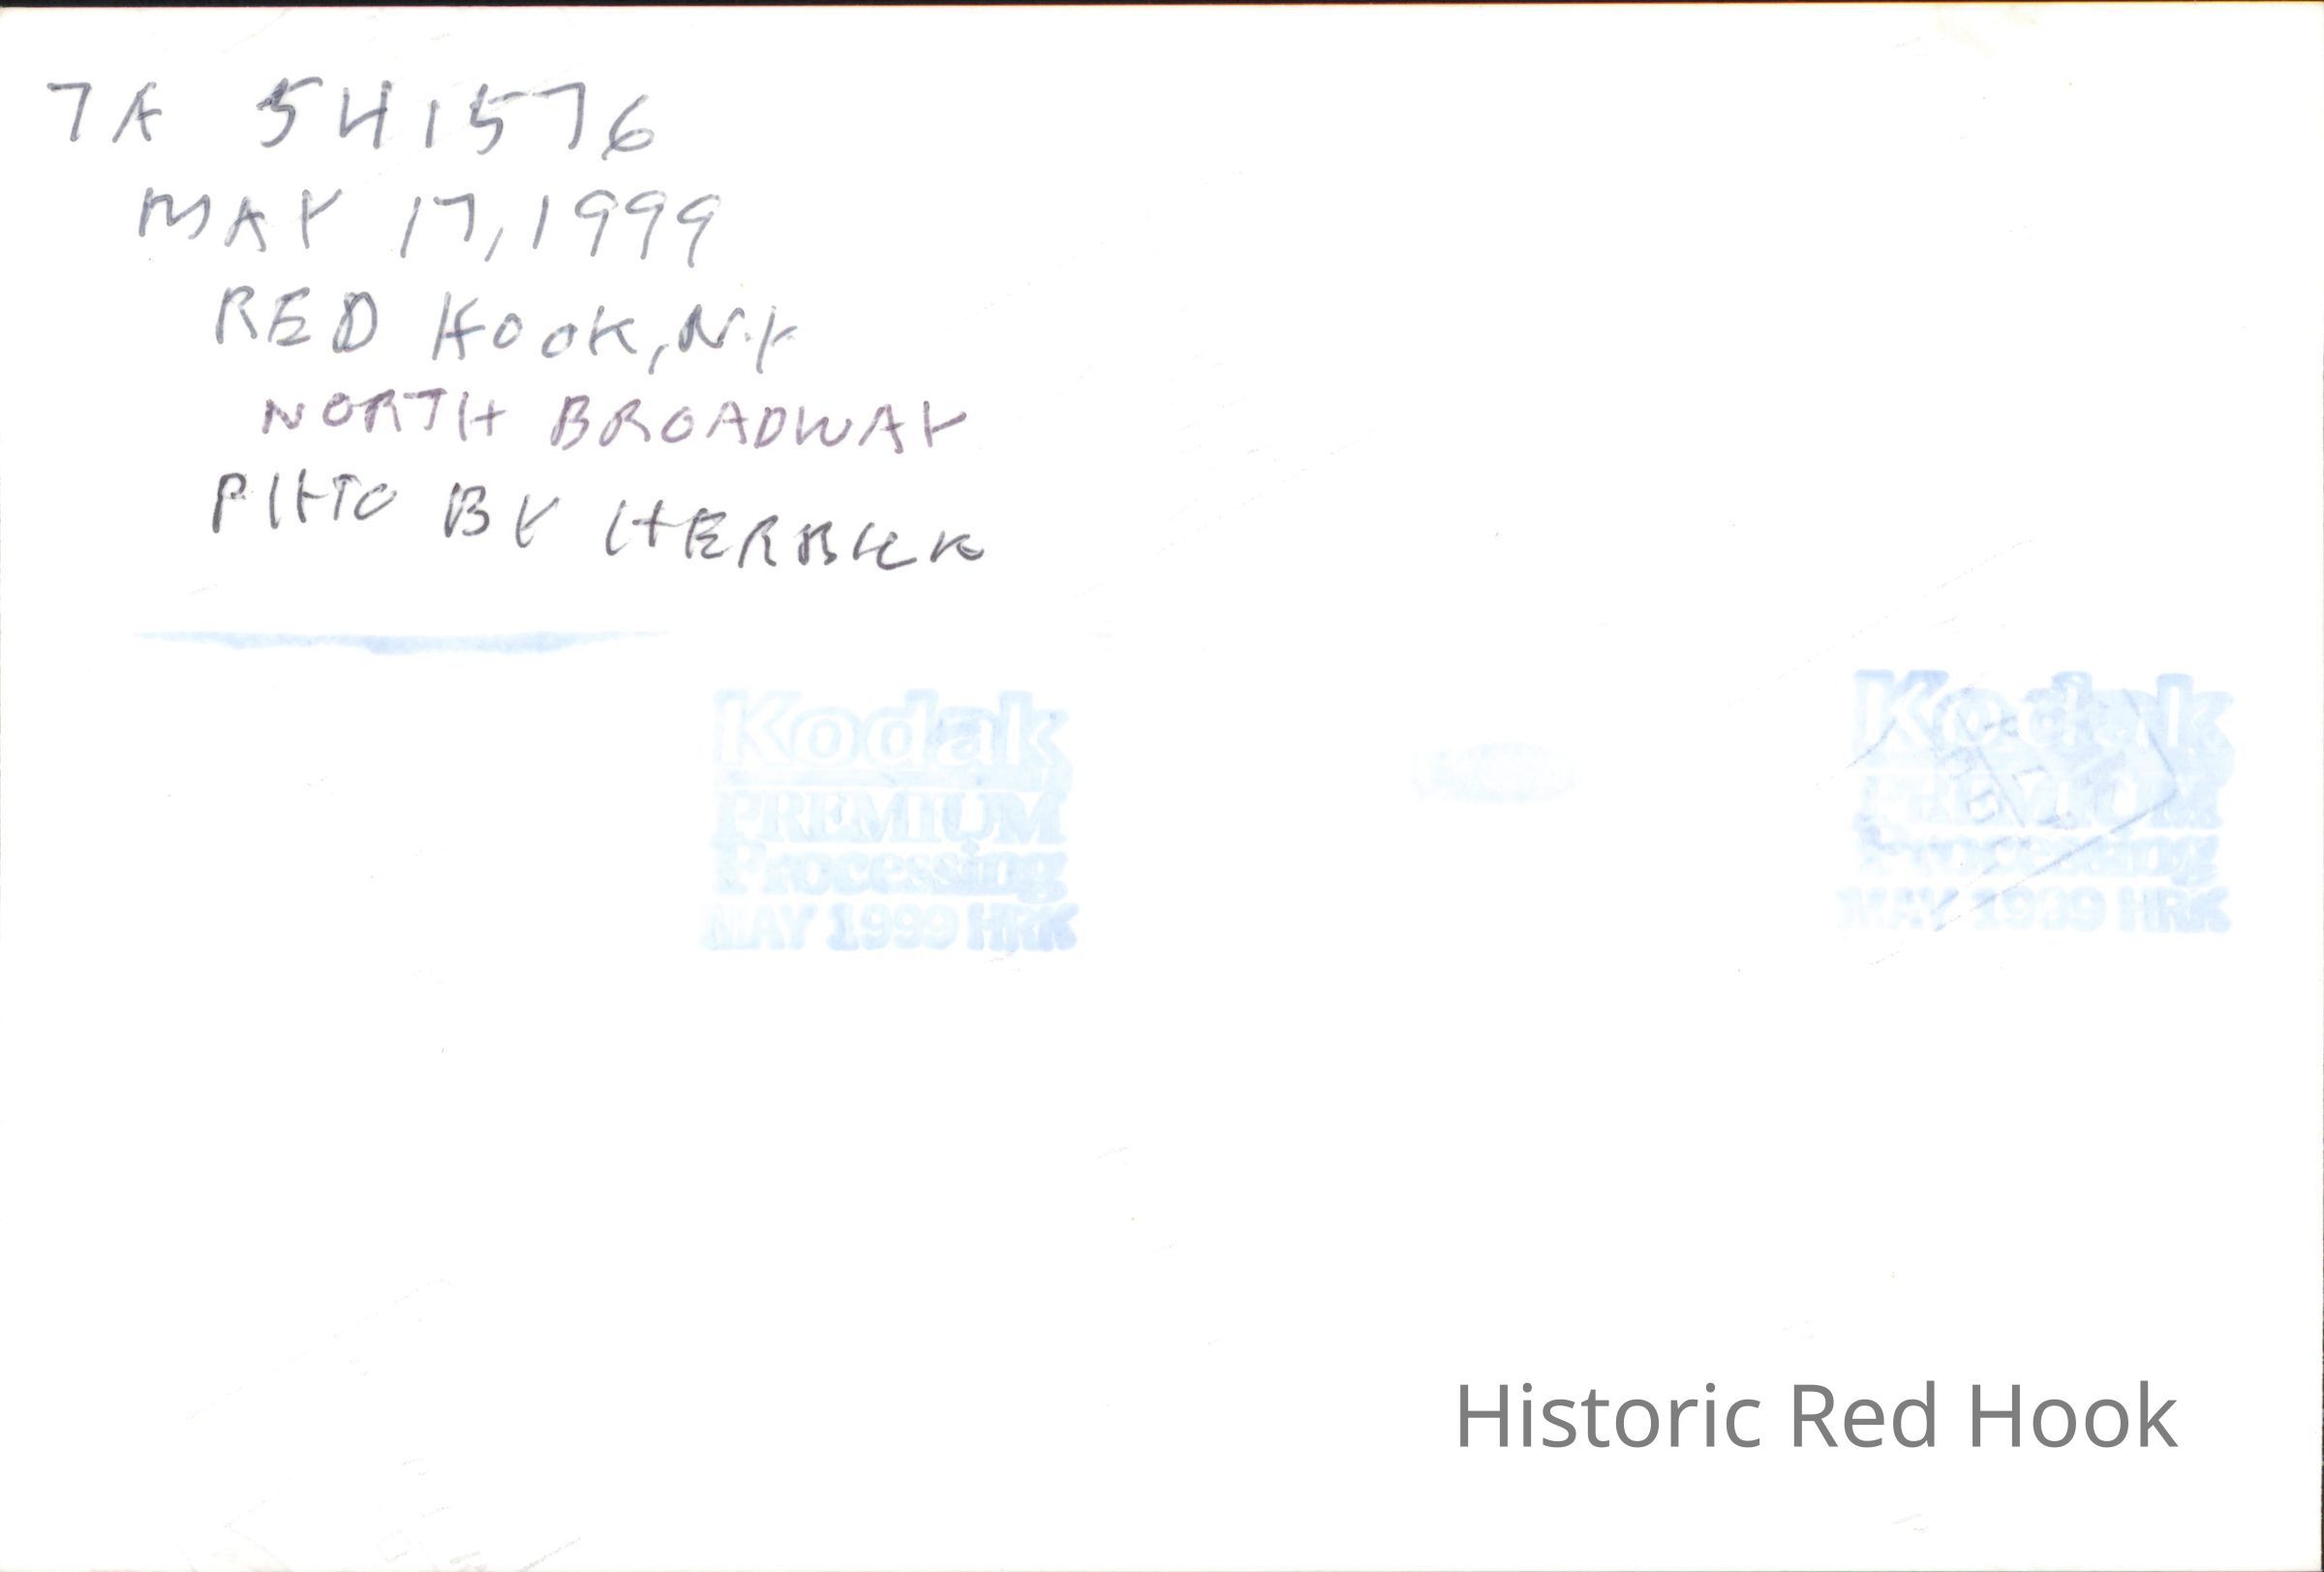 7A 541576
MAY 17, 1999
RED HOOK, N.Y
NORTH BROADWAY
PHTO BY
Kodak
PREMIUM
Processing
MAY 1999 HRK
Kodak
PREMIUM
Processing
MAY 1999 HRK
Historic Red Hook